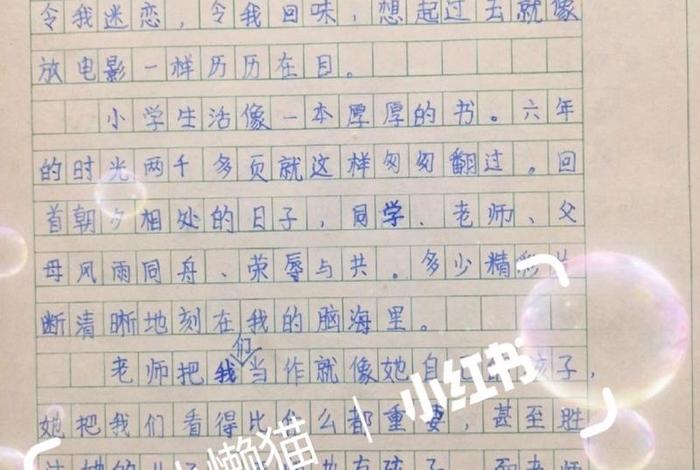 令我迷恋,令我回味,想起过去就像
放电影一样历历在目。
小学生活像一本厚厚的书。六年
的时光两千多页就这样匆匆翻过。回
首朝夕相处的日子,同学、老师、父
母风雨同舟、荣辱与共。多少精彩片
断清晰地刻在我的脑海里。
老师把我们当作就像她自己的孩子,
她把我们看得比什么都重要,甚至胜
小懒猫 | 小红书